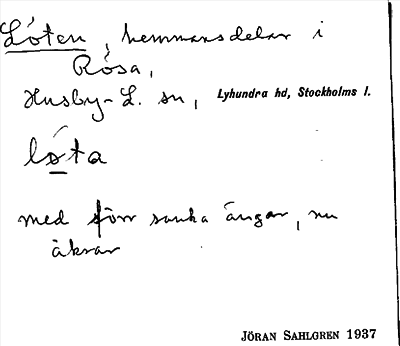 Lóten, hemmansdelar i
Rósa,
Husby-L. sn, Lyhundra hd, Stockholms l.
lo̲ta
med förr sanka ängar, nu
åkrar
JÖRAN SAHLGREN 1937